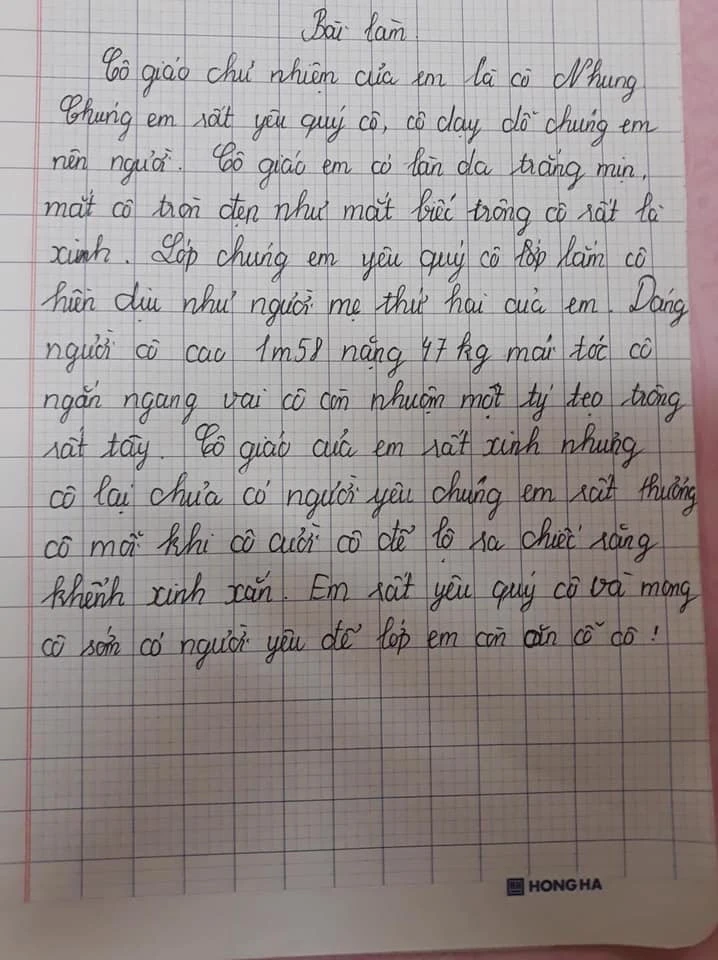 Bài làm
Cô giáo chủ nhiệm của em là cô Nhung
Chúng em rất yêu quý cô, cô dạy dỗ chúng em
nên người. Cô giáo em có làn da trắng mịn,
mắt cô tròn đẹn như mắt biếc trông cô rất là
xinh. Lớp chúng em yêu quý cô lớp lắm cô
hiền dịu như người mẹ thứ hai của em. Dáng
người cô cao 1m58 nặng 47 kg mái tóc cô
ngắn ngang vai cô còn nhuộm một tý tẹo trông
rất tây. Cô giáo của em rất xinh nhưng
cô lại chưa có người yêu chúng em rất thương
cô mỗi khi cô cười cô để lộ ra chiếc răng
khểnh xinh xắn. Em rất yêu quý cô và mong
cô sớm có người yêu để lớp em còn ăn cỗ cô!
HONG HA